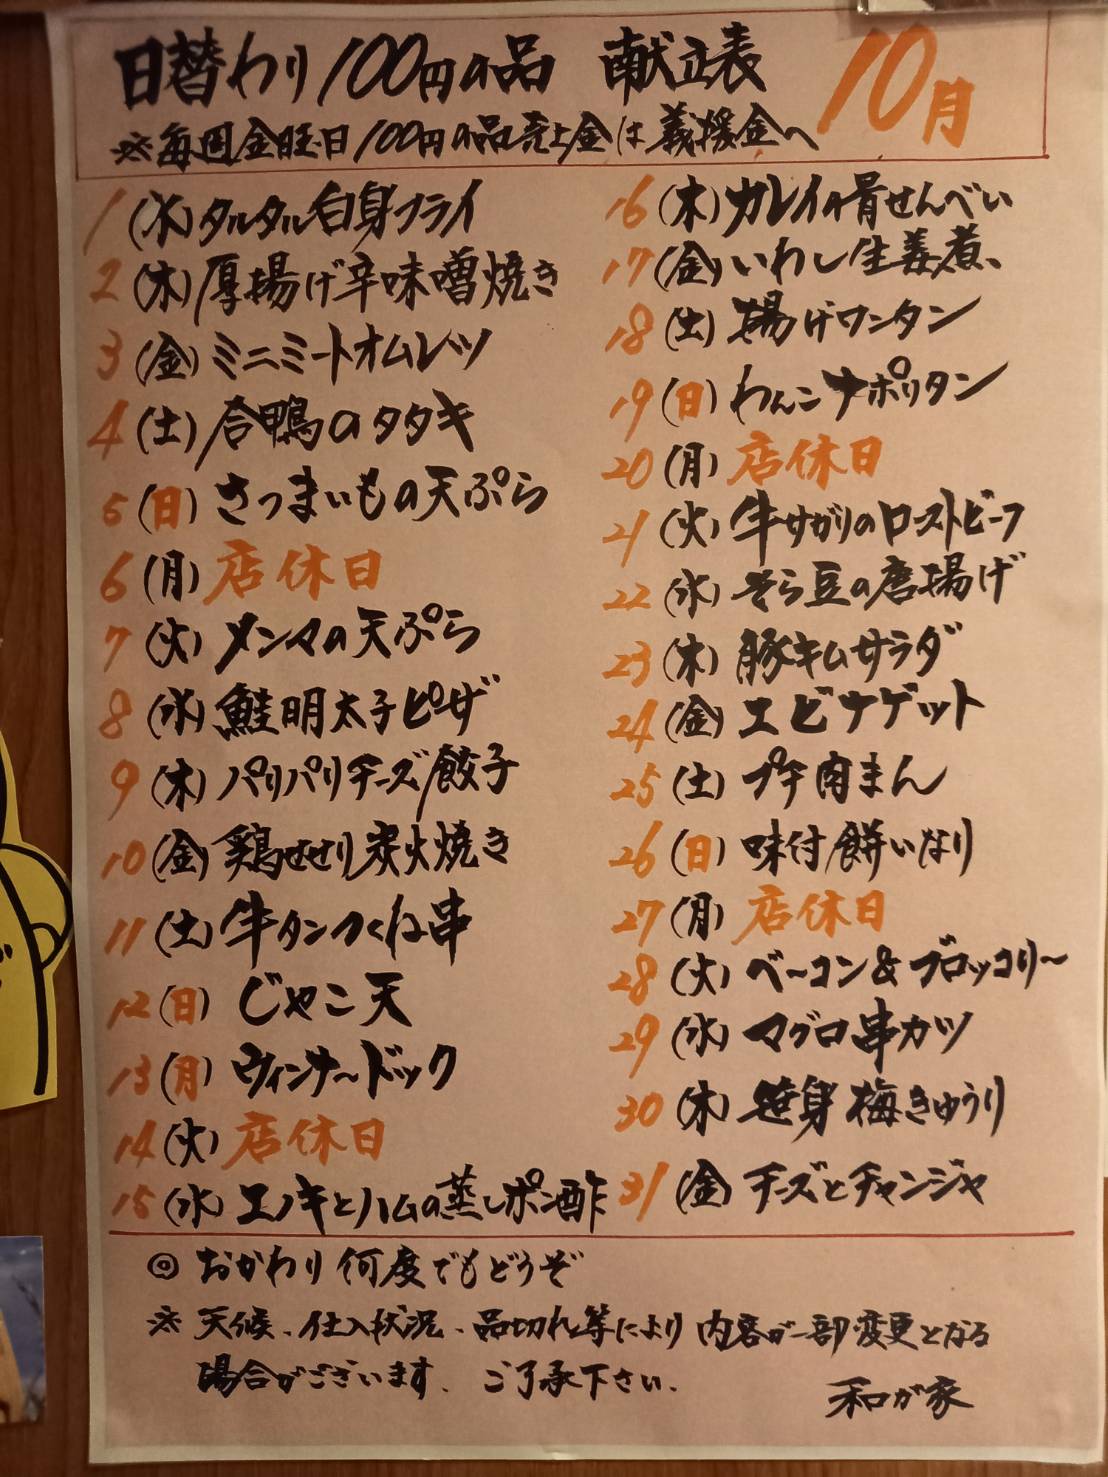 日替わり100円の品 献立表 10月
※毎週金曜日100円の品売上金は義援金へ
1(水)タルタル白身フライ
2(木)厚揚げ辛味噌焼き
3(金)ミニミートオムレツ
4(土)合鴨のタタキ
5(日)さつまいもの天ぷら
6(月)店休日
7(火)メンマの天ぷら
8(水)鮭明太子ピザ
9(木)パリパリチーズ餃子
10(金)鶏せせり炭火焼き
11(土)牛タンつくね串
12(日)じゃこ天
13(月)ウィンナードック
14(火)店休日
15(水)エノキとハムの蒸しポン酢
16(木)カレイの骨せんべい
17(金)いわし生姜煮
18(土)揚げワンタン
19(日)わんこナポリタン
20(月)店休日
21(火)牛サガリのローストビーフ
22(水)そら豆の唐揚げ
23(木)豚キムサラダ
24(金)エビナゲット
25(土)プチ肉まん
26(日)味付餅いなり
27(月)店休日
28(火)ベーコン&ブロッコリー
29(水)マグロ串カツ
30(木)笹身梅きゅうり
31(金)チーズとチャンジャ
◎おかわり何度でもどうぞ
※天候、仕入状況、品切れ等により内容が一部変更となる
場合がございます、ご了承下さい、
和が家